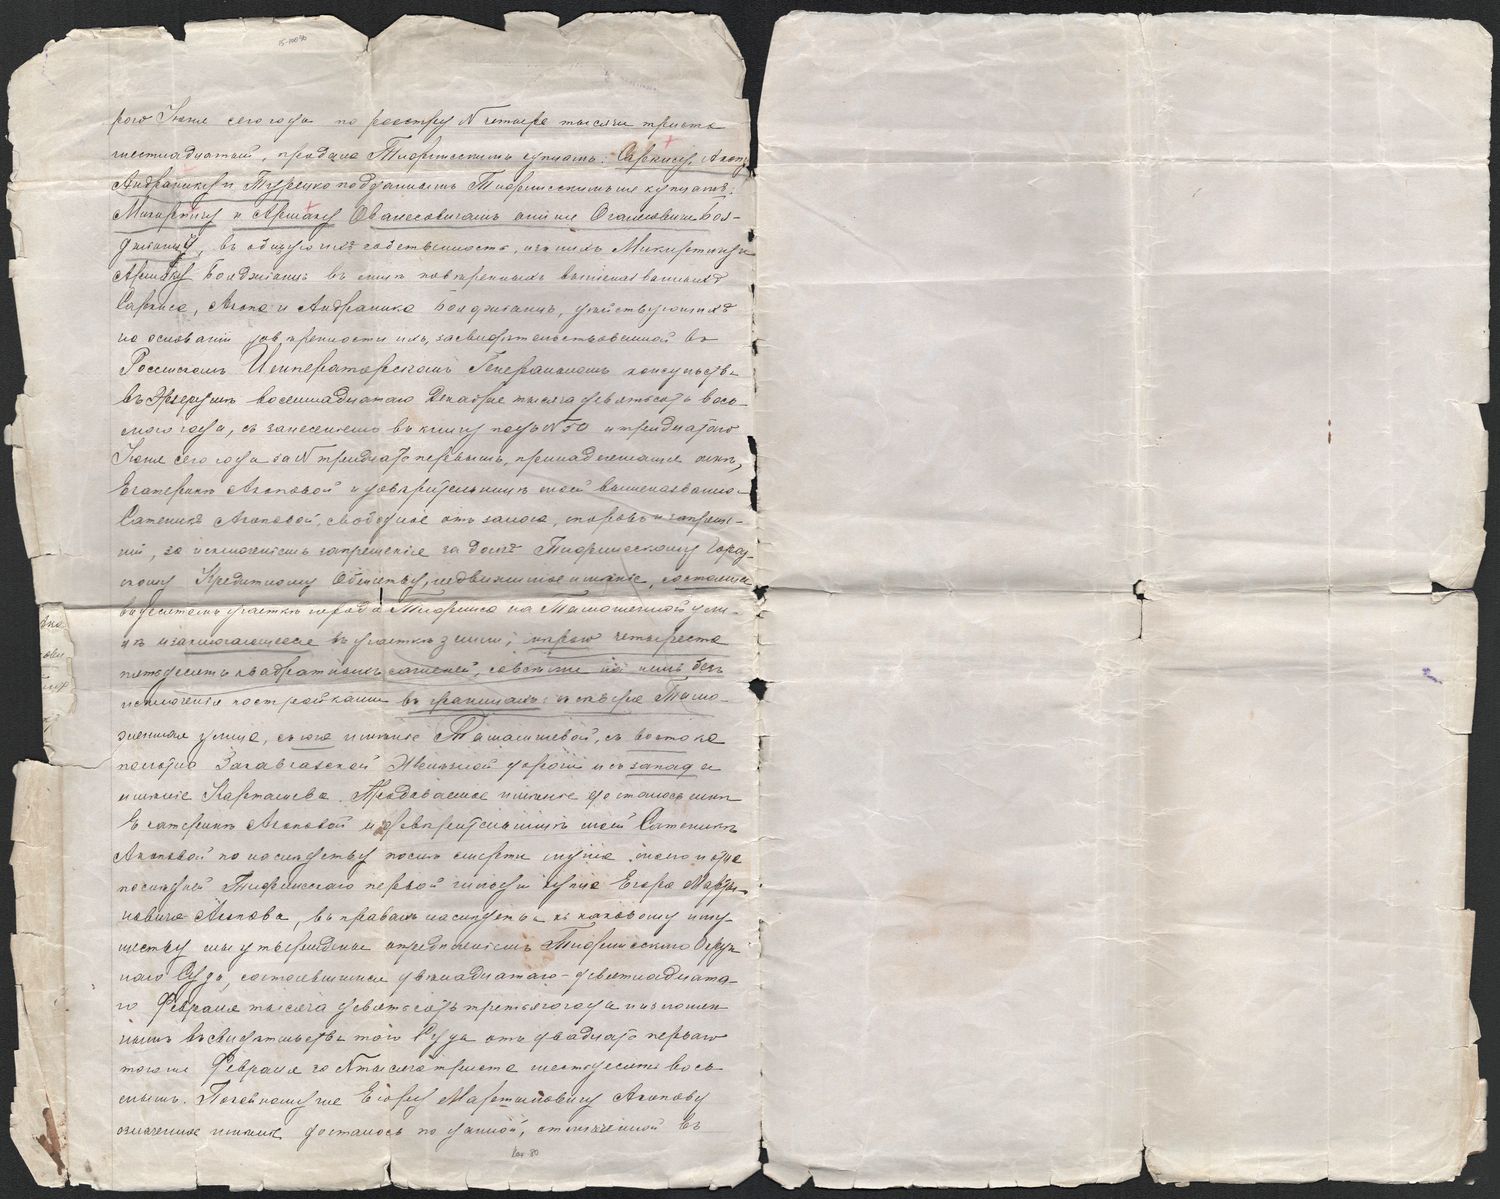 15-10090
рого Июня сего года по реестру N четыре тысячи триста
шестнадцатый, продала Тифлисскимъ купцамъ: Саркису, Агопу
Андранику и Турецко подданнымъ Тифлисскимъ же купцамъ:
Мкиртичу и Аршаку Ованесовичамъ они же Богл-
джянцъ, въ общую ихъ собственность, изъ нихъ Мкиртичу и
АршакуБолджянцъ въ лицѣ повѣренныхъ вышеназванныхъ
Саркиса, Агопа и Андраника Болджянцъ, дѣйствующихъ
на основаніи довѣренности ихъ, засвидѣтельствованной въ
Россійскомъ Императорскомъ Генеральномъ консульствѣ
въ Эрзерумѣ восемнадцатаго Декабря тысяча девятьсотъ вось-
мого года, съ занесеніемъ въ книгу подъ N 50 и тридцатого
Июня сего года за N тридцать первымъ, принадлежащее мнѣ,
Екатеринѣ Агоповой и довѣрительницѣ моей вышеназванной
Сатеникъ Агоповой, свободное отъ залога, споровъ и запреще-
ній, за исключеніемъ запрещенія за долгъ Тифлисскому Город-
скому Кредитному Обществу, недвижимое имѣніе, состоящее
въ участкѣ города Тифлиса на Таможенной ули-
цѣ и заключающееся въ участкѣ земли, мѣрою четыреста
пятьдесятъ квадратныхъ саженей, со всѣми на немъ безъ
исключенія постройками въ границахъ: съ сѣвера Тамо-
женная улица, съ юга имѣніе Тамамшевой, съ востока
полотно Закавказской Желѣзной дороги и съ запада
имѣніе Карташева. Продаваемое имѣніе досталось мнѣ
Екатеринѣ Агоповой и довѣрительницѣ моей Сатеникъ
Агоповой по наслѣдству послѣ смерти мужа моего и отца
послѣдней Тифлисскаго первой гильдіи купца Егора Марты-
новича Агопова, въ правахъ наслѣдства къ каковому иму-
ществу мы утверждены опредѣленіемъ Тифлисскаго Окруж-
наго Суда, состоявшимся двѣнадцатаго-девятнадцата-
го Февраля тысяча девятьсотъ третьяго года и изложен-
нымъ въ свидѣтельствѣ того Суда отъ двадцать перваго
того же Февраля за N тысяча триста шестьдесятъ вось-
мымъ. Покойному же Егору Мартыновичу Агопову
означенное имѣніе досталось по данной, совершенной въ